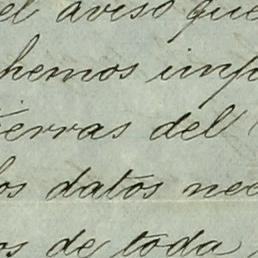 el aviso que
hemos imp
tierras del
los datos nec
os de toda